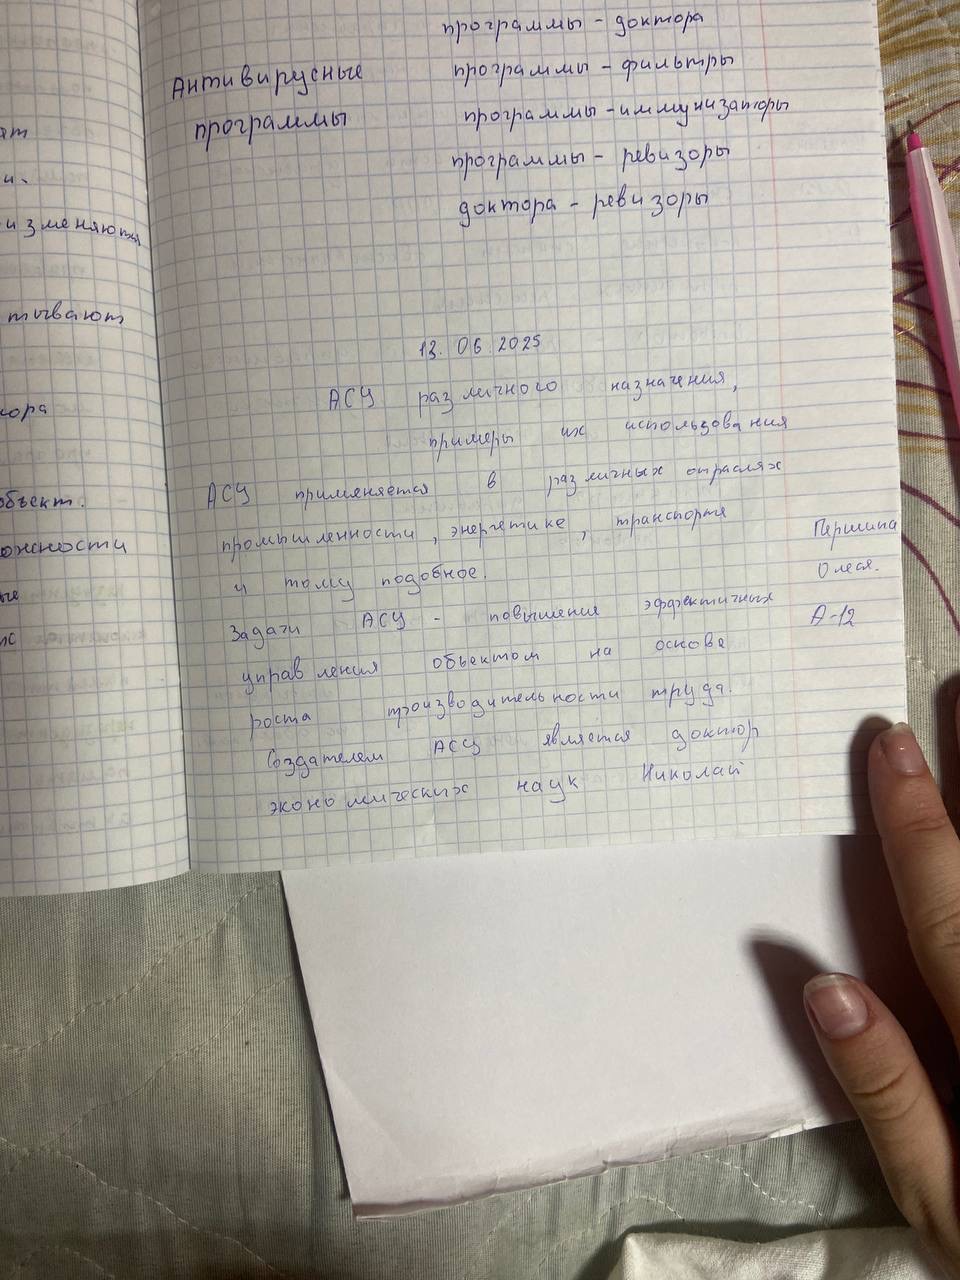 программы - доктора
Антивирусные
программы - фильтры
программы
программы - иммунизаторы
программы - ревизоры
доктора - ревизоры
изменяются
тывают
объект.
13. 06. 2025
АСУ различного назначения,
примеры их использования
АСУ применяется в различных отраслях
промышленности, энергетике, транспорте
и тому подобное.
Задачи АСУ - повышения эффектичных
управления объектом на основе
роста производительности труда.
Создателем АСУ является доктор
экономических наук Николай
Першина
Олеся.
А-12